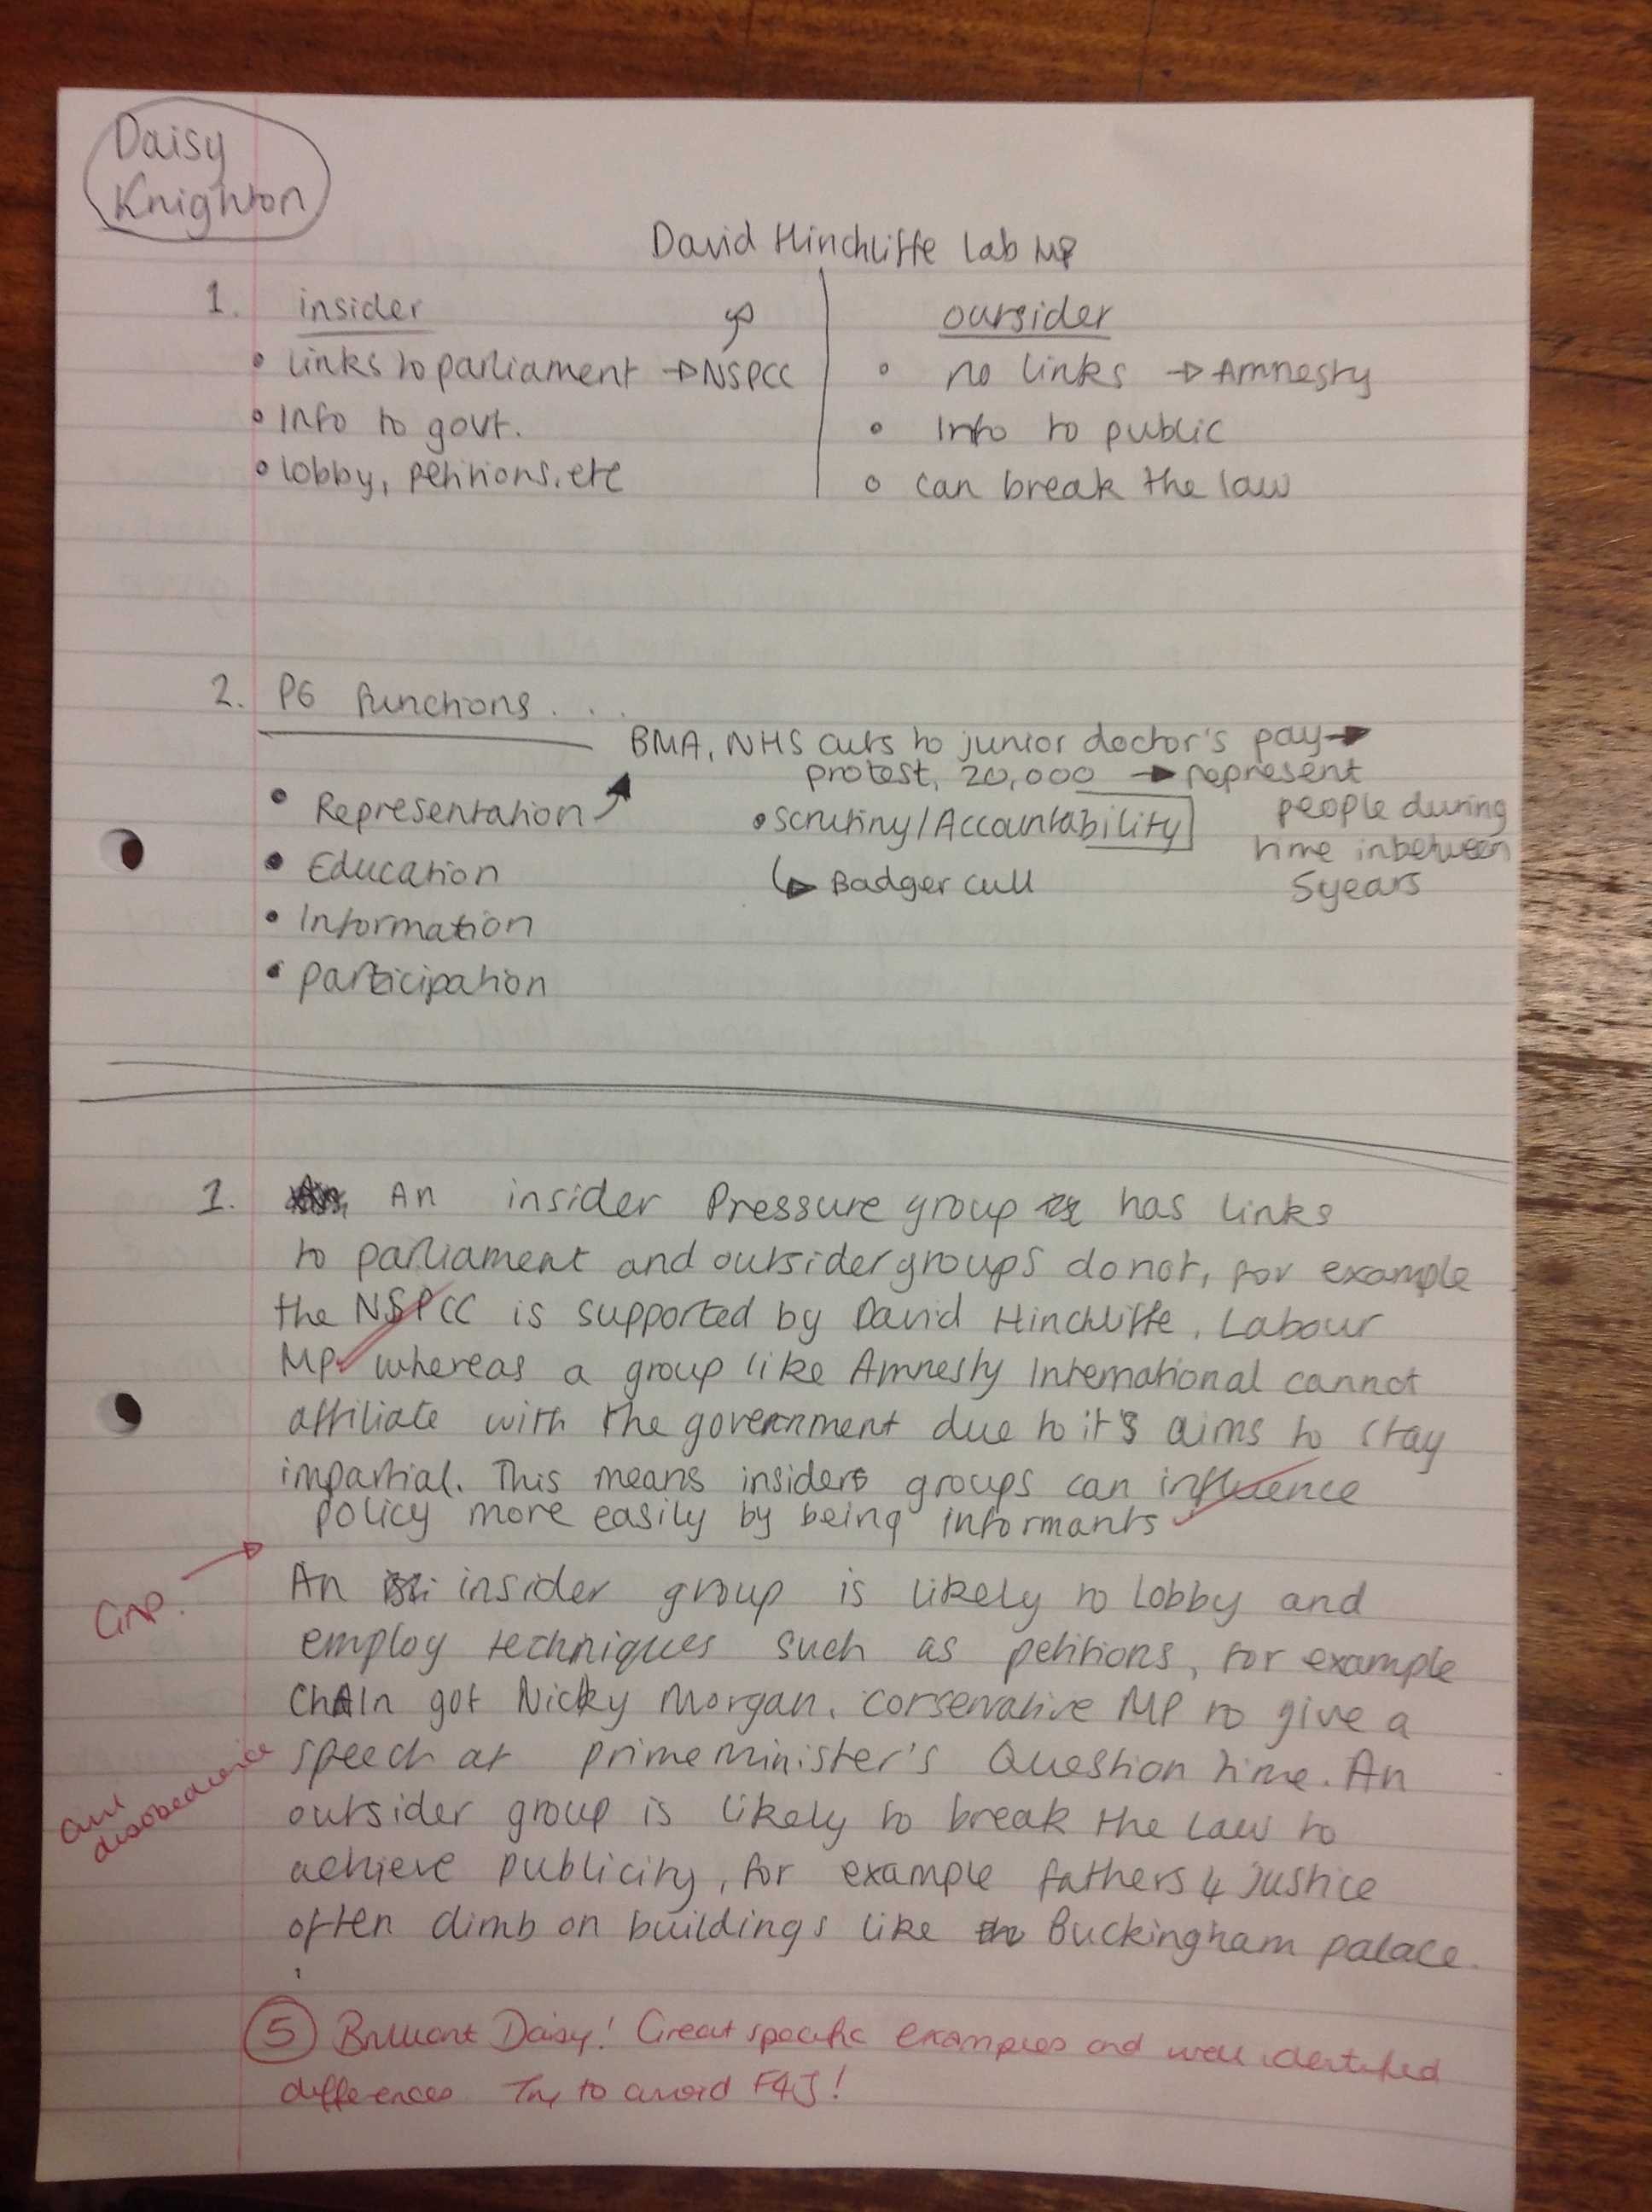 Daisy
Knighton
David Hinchliffe Lab MP
1. insider
outsider
• links to parliament → NSPCC
• no links → Amnesty
• Info to govt.
• Info to public
• lobby, petitions, etc
• can break the law
2. PG functions...
BMA, NHS cuts to junior doctor's pay →
protest, 20,000 → represent
people during
time inbetween
5years
• Representation
• Scrutiny/Accountability
• Education
↳ Badger cull
• Information
• participation
1. An insider Pressure group has links
to parliament and outsider groups do not, for example
the NSPCC is supported by David Hinchliffe, Labour
MP whereas a group like Amnesty International cannot
affiliate with the government due to it's aims to stay
impartial. This means insider groups can influence
policy more easily by being informants
GAP.
An insider group is likely to lobby and
employ techniques such as petitions, for example
ChAIn got Nicky Morgan, conservative MP to give a
speech at prime minister's Question time. An
civil
disobedience
outsider group is likely to break the law to
achieve publicity, for example fathers 4 Justice
often climb on buildings like Buckingham palace.
5 Brilliant Daisy! Great specific examples and well identified
differences. Try to avoid F4J!